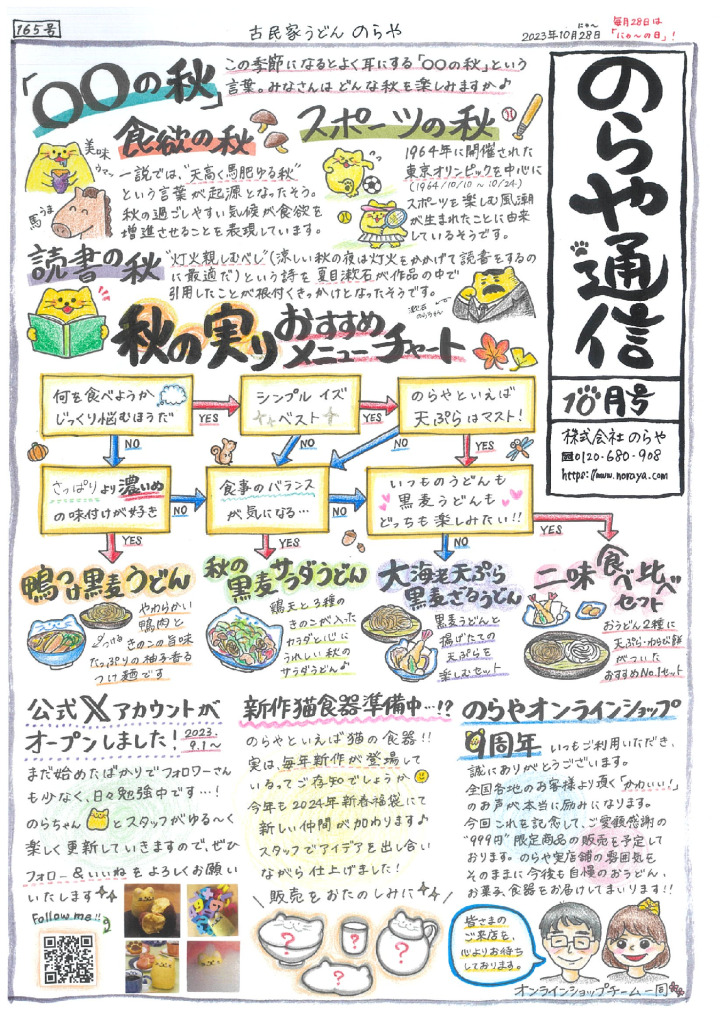 165号
古民家うどん のらや
2023年10月28日
にゃ〜
毎月28日は
「にゃ〜の日」！
のらや通信
10月号
株式会社のらや
☎0120-680-908
https://www.noraya.com
「〇〇の秋」
この季節になるとよく耳にする「〇〇の秋」という
言葉。みなさんはどんな秋を楽しみますか♪
食欲の秋
美味
ウマ〜
馬うま
一説では、"天高く馬肥ゆる秋"
という言葉が起源となったそう。
秋の過ごしやすい気候が食欲を
増進させることを表現しています。
スポーツの秋
1964年に開催された
東京オリンピックを中心に
(1964/10/10〜10/24)
スポーツを楽しむ風潮
が生まれたことに由来
しているそうです。
読書の秋
"灯火親しむべし"(涼しい秋の夜は灯火をかかげて読書をするの
に最適だ)という詩を夏目漱石が作品の中で
引用したことが根付くきっかけとなったそうです。
漱石
のらちゃん
秋の実りおすすめ
メニューチャート
何を食べようか
じっくり悩むほうだ
YES
シンプル イズ
ベスト
YES
のらやといえば
天ぷらはマスト！
NO
NO
NO
YES
さっぱりより濃いめ
の味付けが好き
NO
食事のバランス
が気になる…
NO
いつものうどんも
黒麦うどんも
どっちも楽しみたい!!
YES
YES
NO
YES
鴨つけ黒麦うどん
やわらかい
鴨肉と
きのこの旨味
たっぷりの柚子香る
つけ麺です
秋の
黒麦サラダうどん
鶏天と3種の
きのこが入った
カラダと心に
うれしい秋の
サラダうどん♪
大海老天ぷら
黒麦ざるうどん
黒麦うどんと
揚げたての
天ぷらを
楽しむセット
二味食べ比べ
セット
おうどん2種に
天ぷら・わらび餅
がついた
おすすめNo.1セット
公式Xアカウントが
オープンしました！
2023.
9.1〜
まだ始めたばかりでフォロワーさん
も少なく、日々勉強中です…！
のらちゃんとスタッフがゆる〜く
楽しく更新していきますので、ぜひ
フォロー＆いいねをよろしくお願い
いたします
Follow me!!
新作猫食器準備中…!?
のらやといえば猫の食器!!
実は、毎年新作が登場して
いるってご存知でしょうか
今年も2024年新春福袋にて
新しい仲間が加わります♪
スタッフでアイデアを出し合い
ながら仕上げました！
\ 販売をおたのしみに /
?
?
?
?
のらやオンラインショップ
9周年
いつもご利用いただき、
誠にありがとうございます。
全国各地のお客様より頂く「かわいい！」
のお声が本当に励みになります。
今回これを記念して、ご愛顧感謝の
"999円"限定商品の販売を予定して
おります。のらや実店舗の雰囲気を
そのままに今後も自慢のおうどん、
お菓子、食器をお届けしてまいります!!
皆さまの
ご来店を、
心よりお待ち
しております。
オンラインショップチーム一同